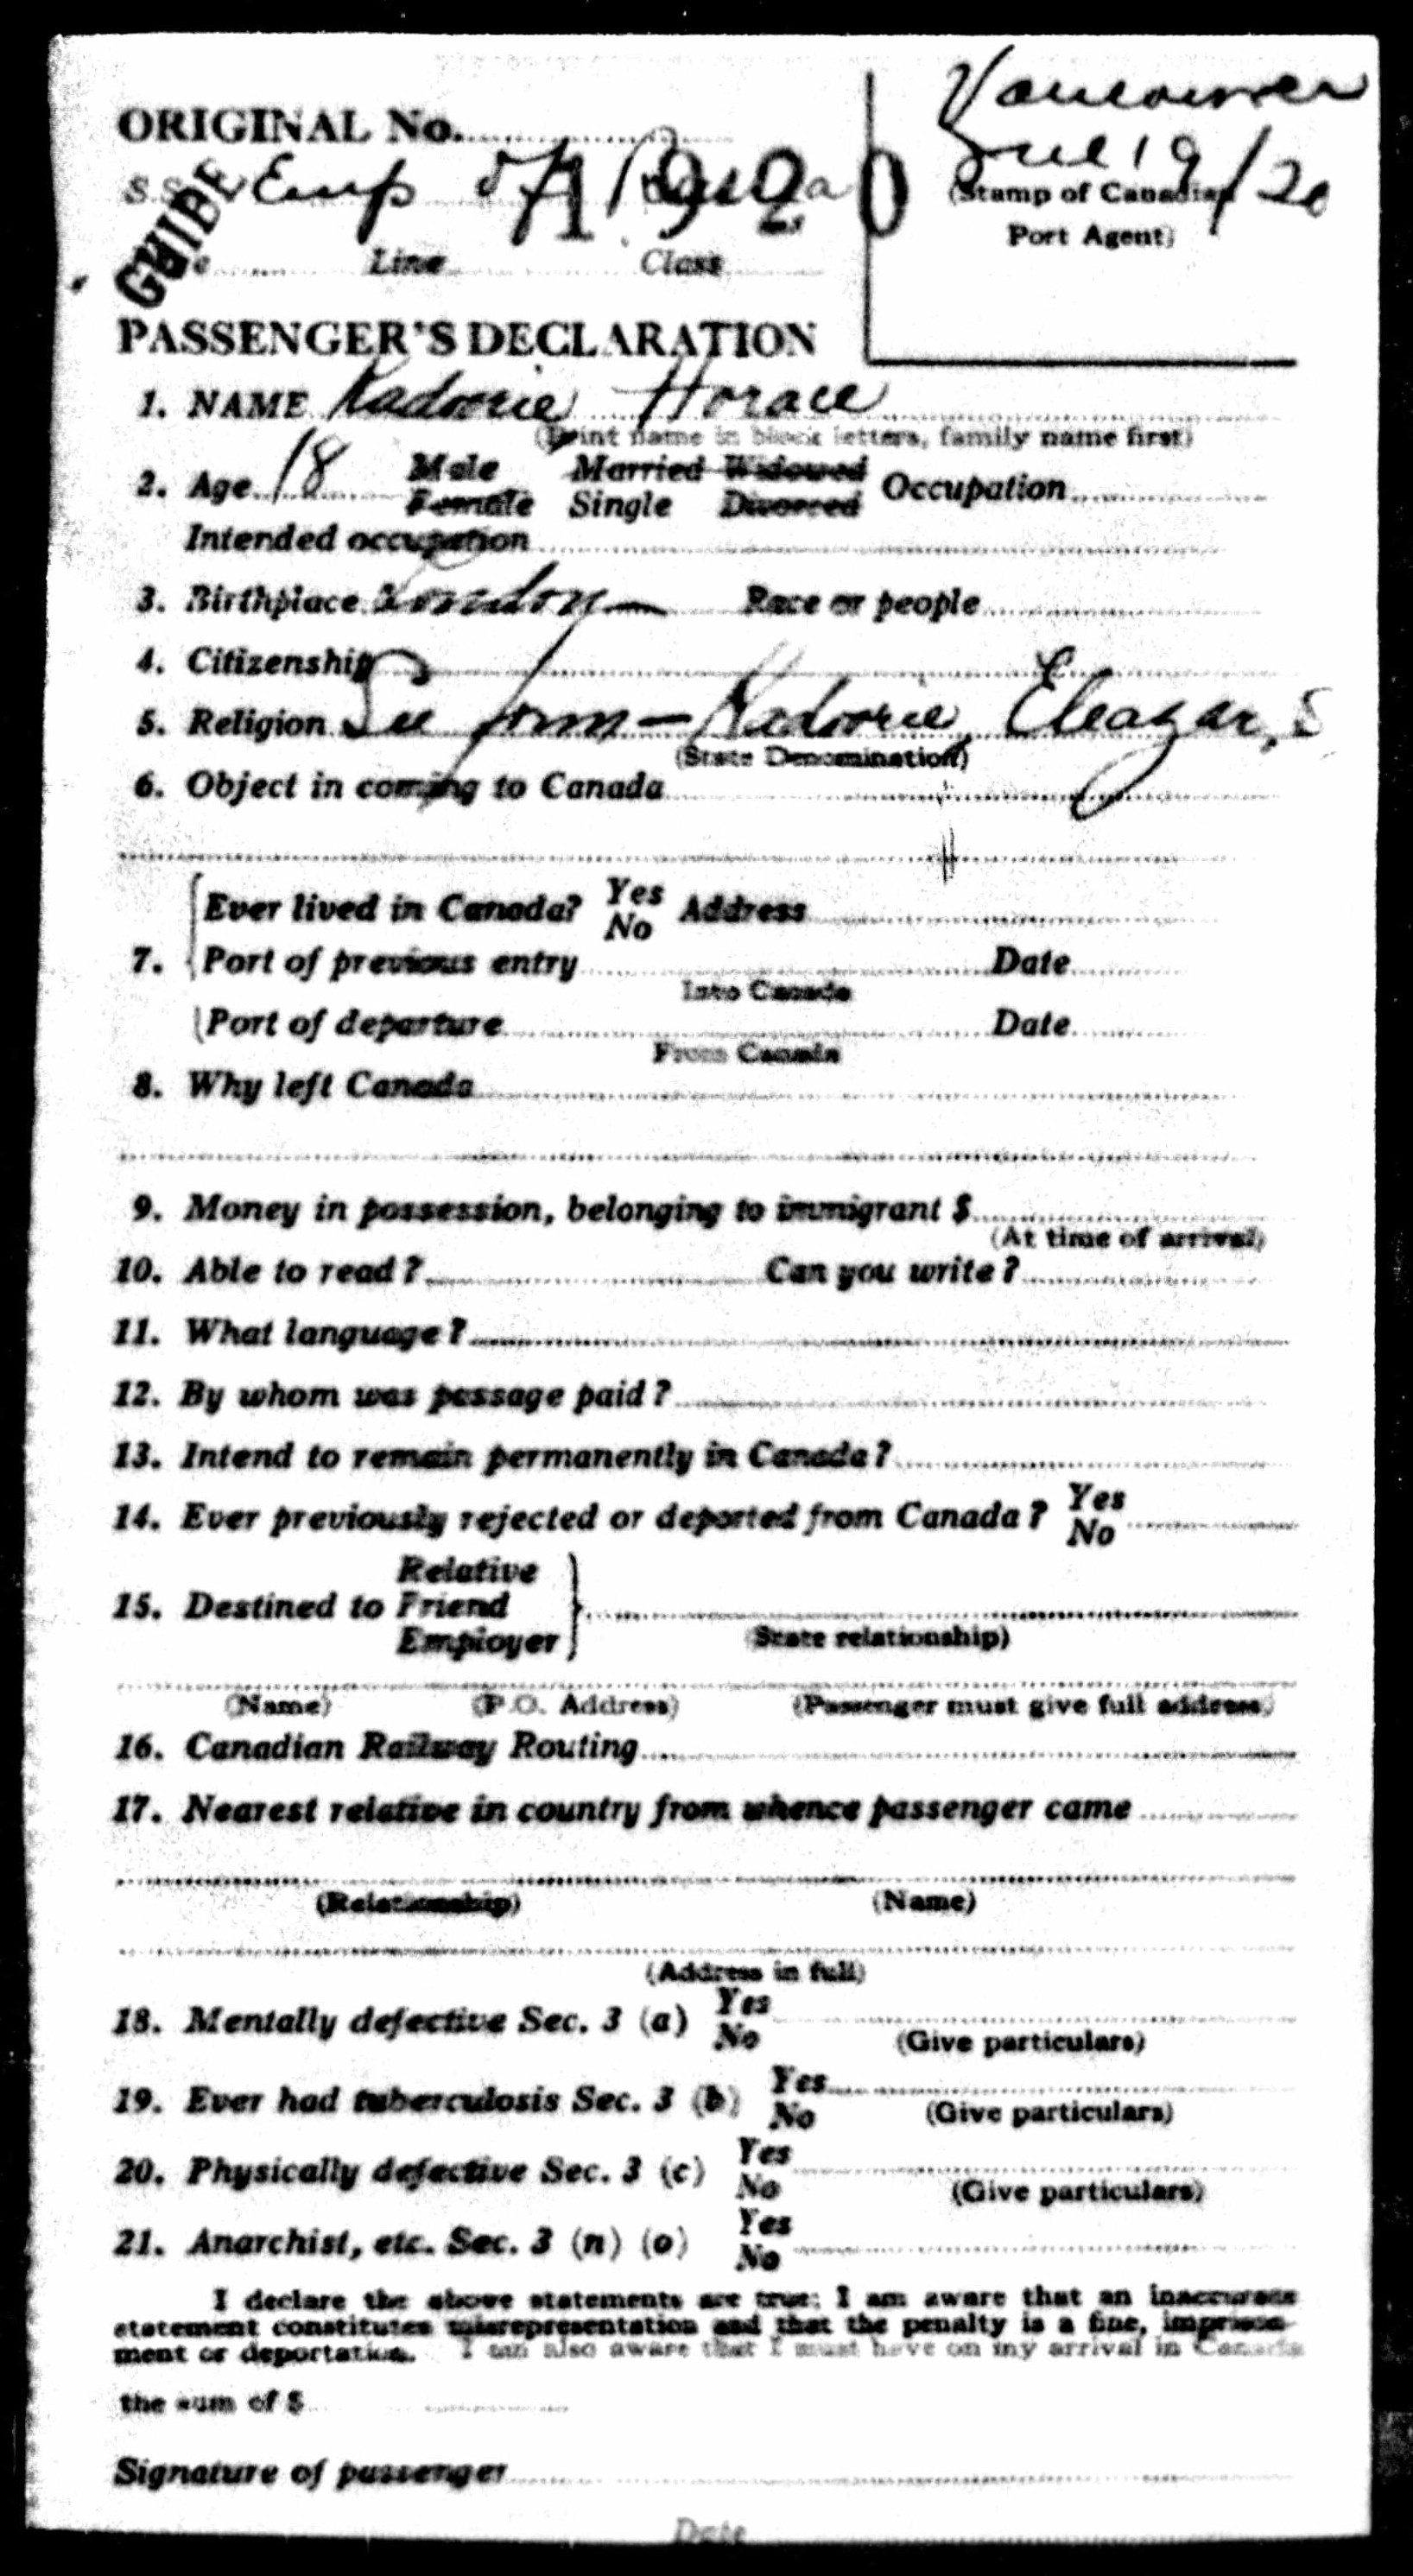 Vancouver
ORIGINAL No.
Jul 19/20
S.S. Emp of
1920
(Stamp of Canadian
Port Agent)
GUIDE
Line Class
PASSENGER'S DECLARATION
1. NAME Kadoorie Horace
(Print name in block letters, family name first)
2. Age 18 Male Married Widowed Occupation
Female Single Divorced
Intended occupation
3. Birthplace London Race or people
4. Citizenship
5. Religion See form — Kadoorie, Eleazar, S
(State Denomination)
6. Object in coming to Canada
Ever lived in Canada? Yes No Address
7. Port of previous entry Date
Into Canada
Port of departure Date
From Canada
8. Why left Canada
9. Money in possession, belonging to immigrant $
(At time of arrival)
10. Able to read? Can you write?
11. What language?
12. By whom was passage paid?
13. Intend to remain permanently in Canada?
14. Ever previously rejected or deported from Canada? Yes No
Relative
15. Destined to Friend
Employer
(State relationship)
(Name) (P.O. Address) (Passenger must give full address)
16. Canadian Railway Routing
17. Nearest relative in country from whence passenger came
(Relationship) (Name)
(Address in full)
18. Mentally defective Sec. 3 (a) Yes No
(Give particulars)
19. Ever had tuberculosis Sec. 3 (b) Yes No
(Give particulars)
20. Physically defective Sec. 3 (c) Yes No
(Give particulars)
21. Anarchist, etc. Sec. 3 (n) (o) Yes No
I declare the above statements are true; I am aware that an inaccurate
statement constitutes misrepresentation and that the penalty is a fine, imprison-
ment or deportation. I am also aware that I must have on my arrival in Canada
the sum of $
Signature of passenger
Date